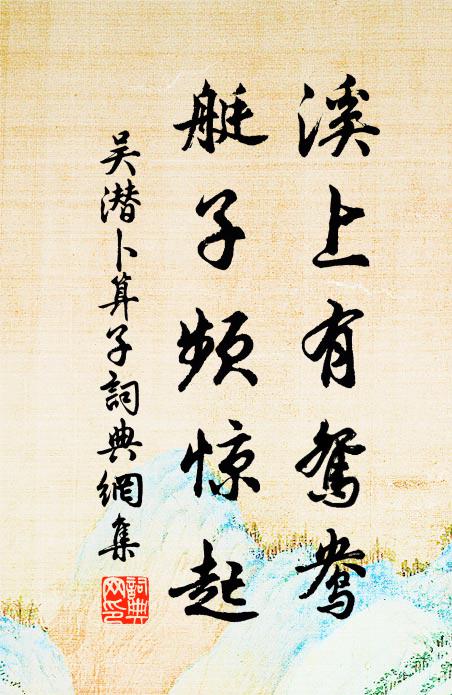 溪上有鸳鸯
艇子频惊起
吴潜卜算子詞典網集
詞典